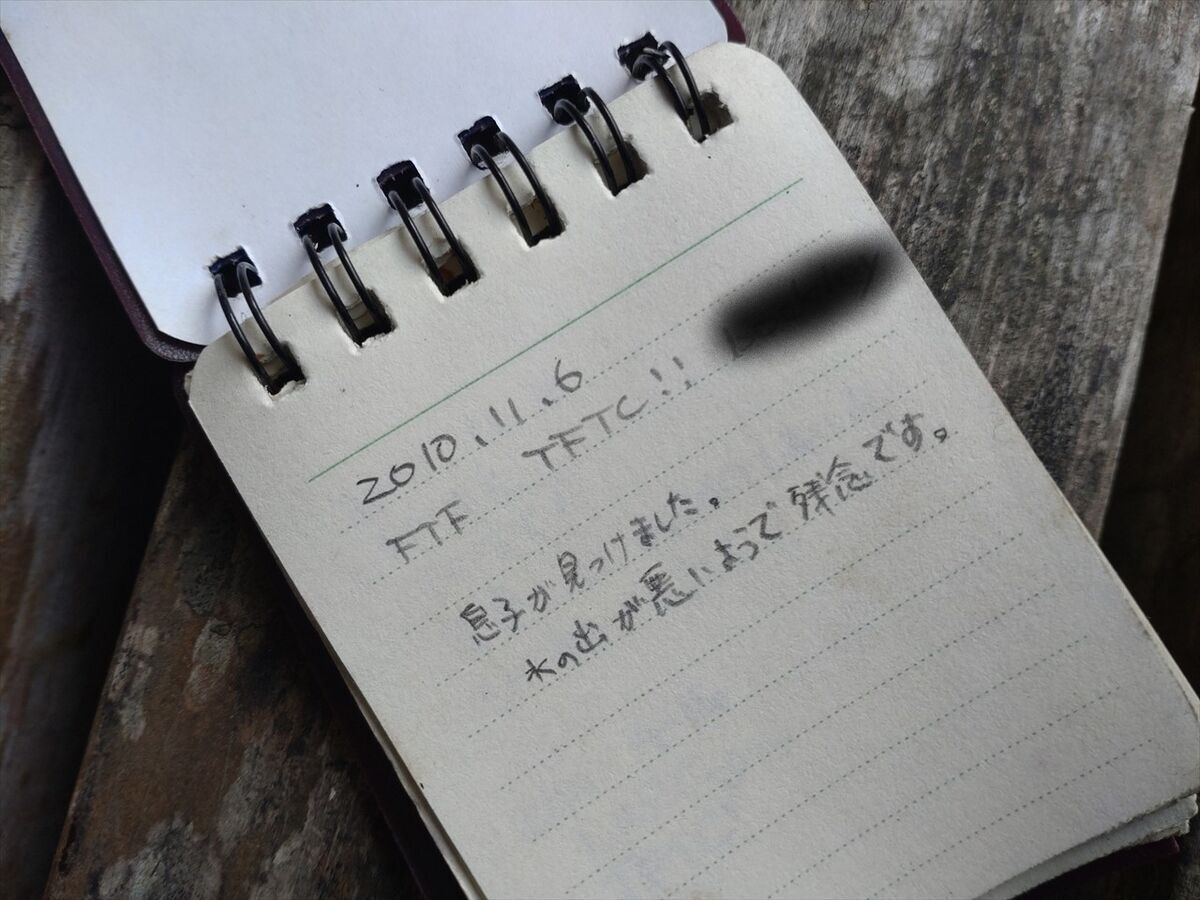 2010.11.6
FTF TFTC!!
息子が見つけました。
水の出が悪いようで残念です。